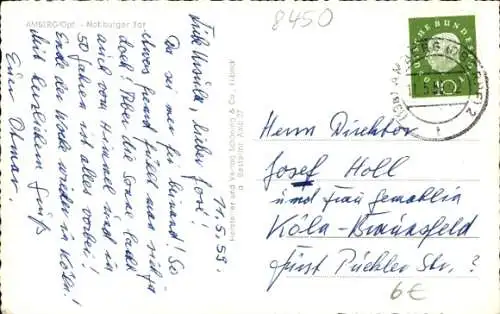 AMBERG/Opf. - Nabburger Tor
8450
11.5.59.
Liebe Ursula, lieber José!
Da sei mer bei
etwas fremd fühlt man sich ja
doch! Aber die Sonne lacht
auch vom Himmel und in
50 Jahren ist alles vorbei!
Ende der Woche wieder in Köln!
Mit herzlichem Gruß
Euer Otmar.
Hersteller und Verlag Schöning & Co., Lübeck
DEUTSCHE BUNDESPOST
10
AMBERG (OBERPF) 2
Herrn Direktor
Josef Holl
und Frau Gemahlin
Köln-Braunsfeld
Fürst Pückler Str. ?
6€